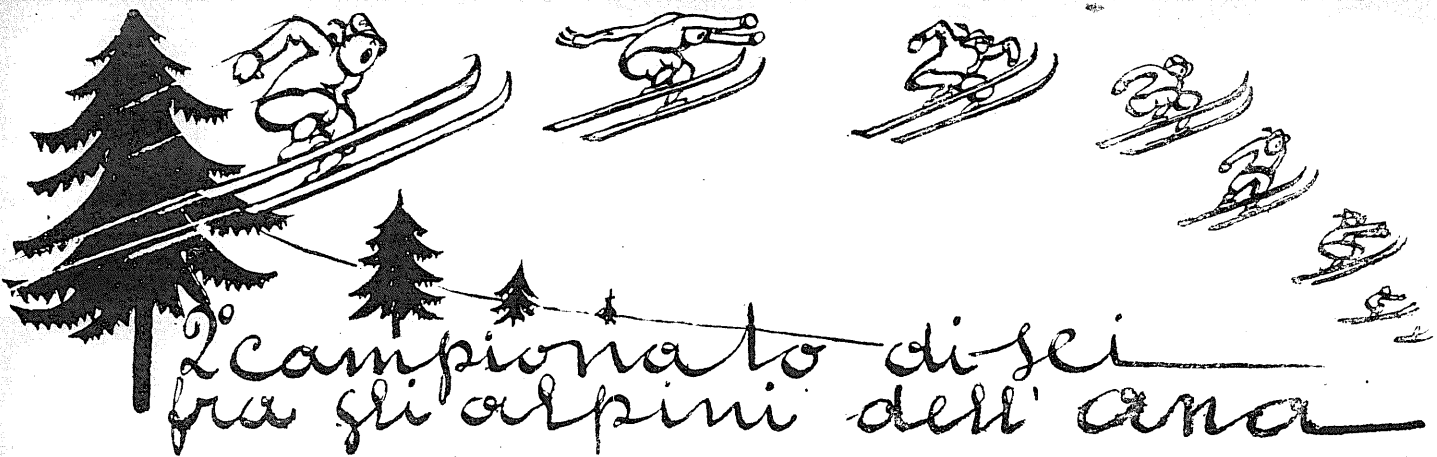 2° campionato di sci
fra gli alpini dell' ana